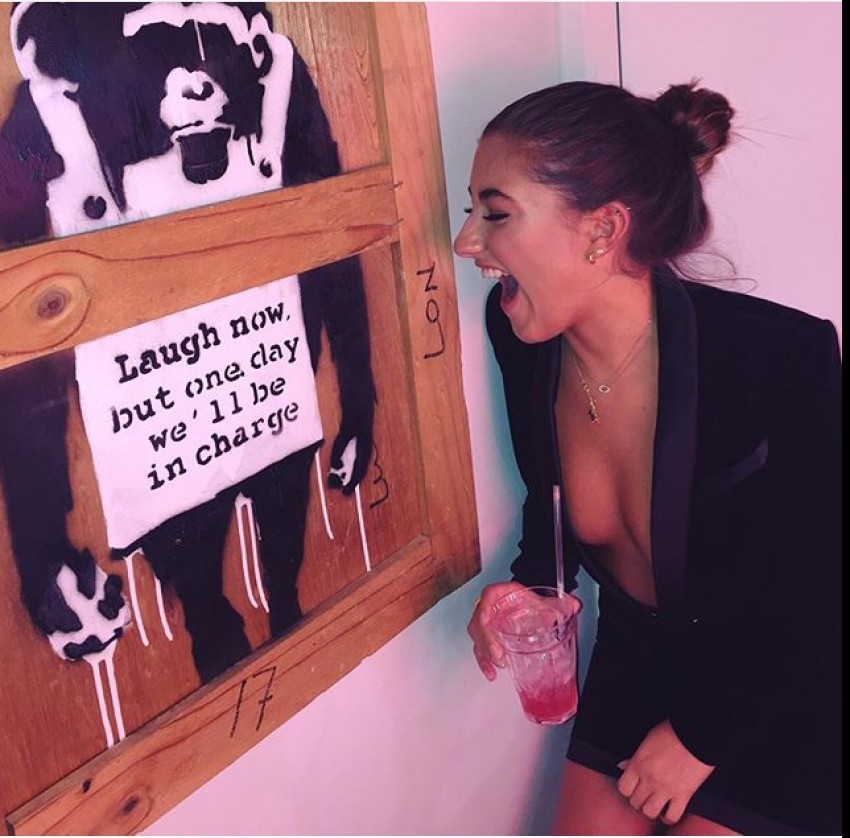 Laugh now,
but one day
we'll be
in charge
LON
3
17